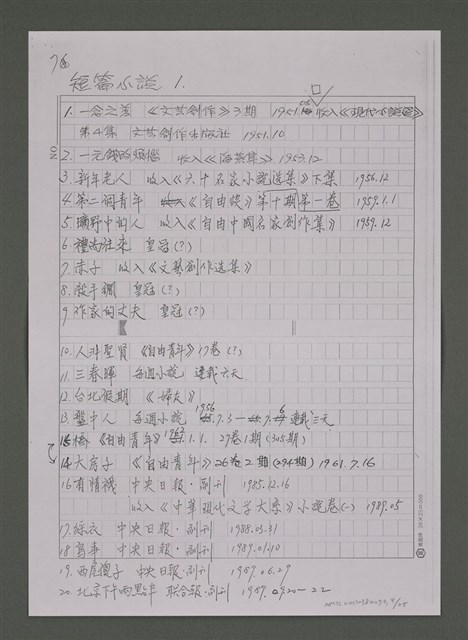 短篇小說 1.
1. 一念之差 《文艺創作》3期 1951. 收入《現代小說選》
第4集 文艺創作出版社 1951.10
2. 一元錢的煩惱 收入《海燕集》 1953.12
3. 新年老人 收入《六十名家小說選集》下集 1956.12
4. 第二個青年 《自由談》第十期第一卷 1959.1.1
5. 曠野中的人 收入《自由中國名家創作集》 1959.12
6. 禮尚往來 皇冠(?)
7. 赤子 收入《文藝創作選集》
8. 殺手鐧 皇冠(?)
9. 作家的丈夫 皇冠(?)
10. 人非聖賢 《自由青年》17卷(?)
11. 三春暉 每週小說 連載六天
12. 台北假期 《婦友》
13. 盤中人 每週小說 1956.7.3 — 7.6 連載三天
15 橋 《自由青年》1962.1.1. 27卷1期(305期)
14 大房子 《自由青年》26卷2期(294期) 1961.7.16
16 有情襪 中央日報·副刊 1985.12.16
收入《中華現代文学大系》小說卷(一) 1989.05
17. 綵衣 中央日報·副刊 1988.05.31
18 中央日報·副刊 1989.01.10
19. 西屋傻子 中央日報·副刊 1989.06.29
20. 北京下午兩點半 联合報·副刊 1989.0920-22